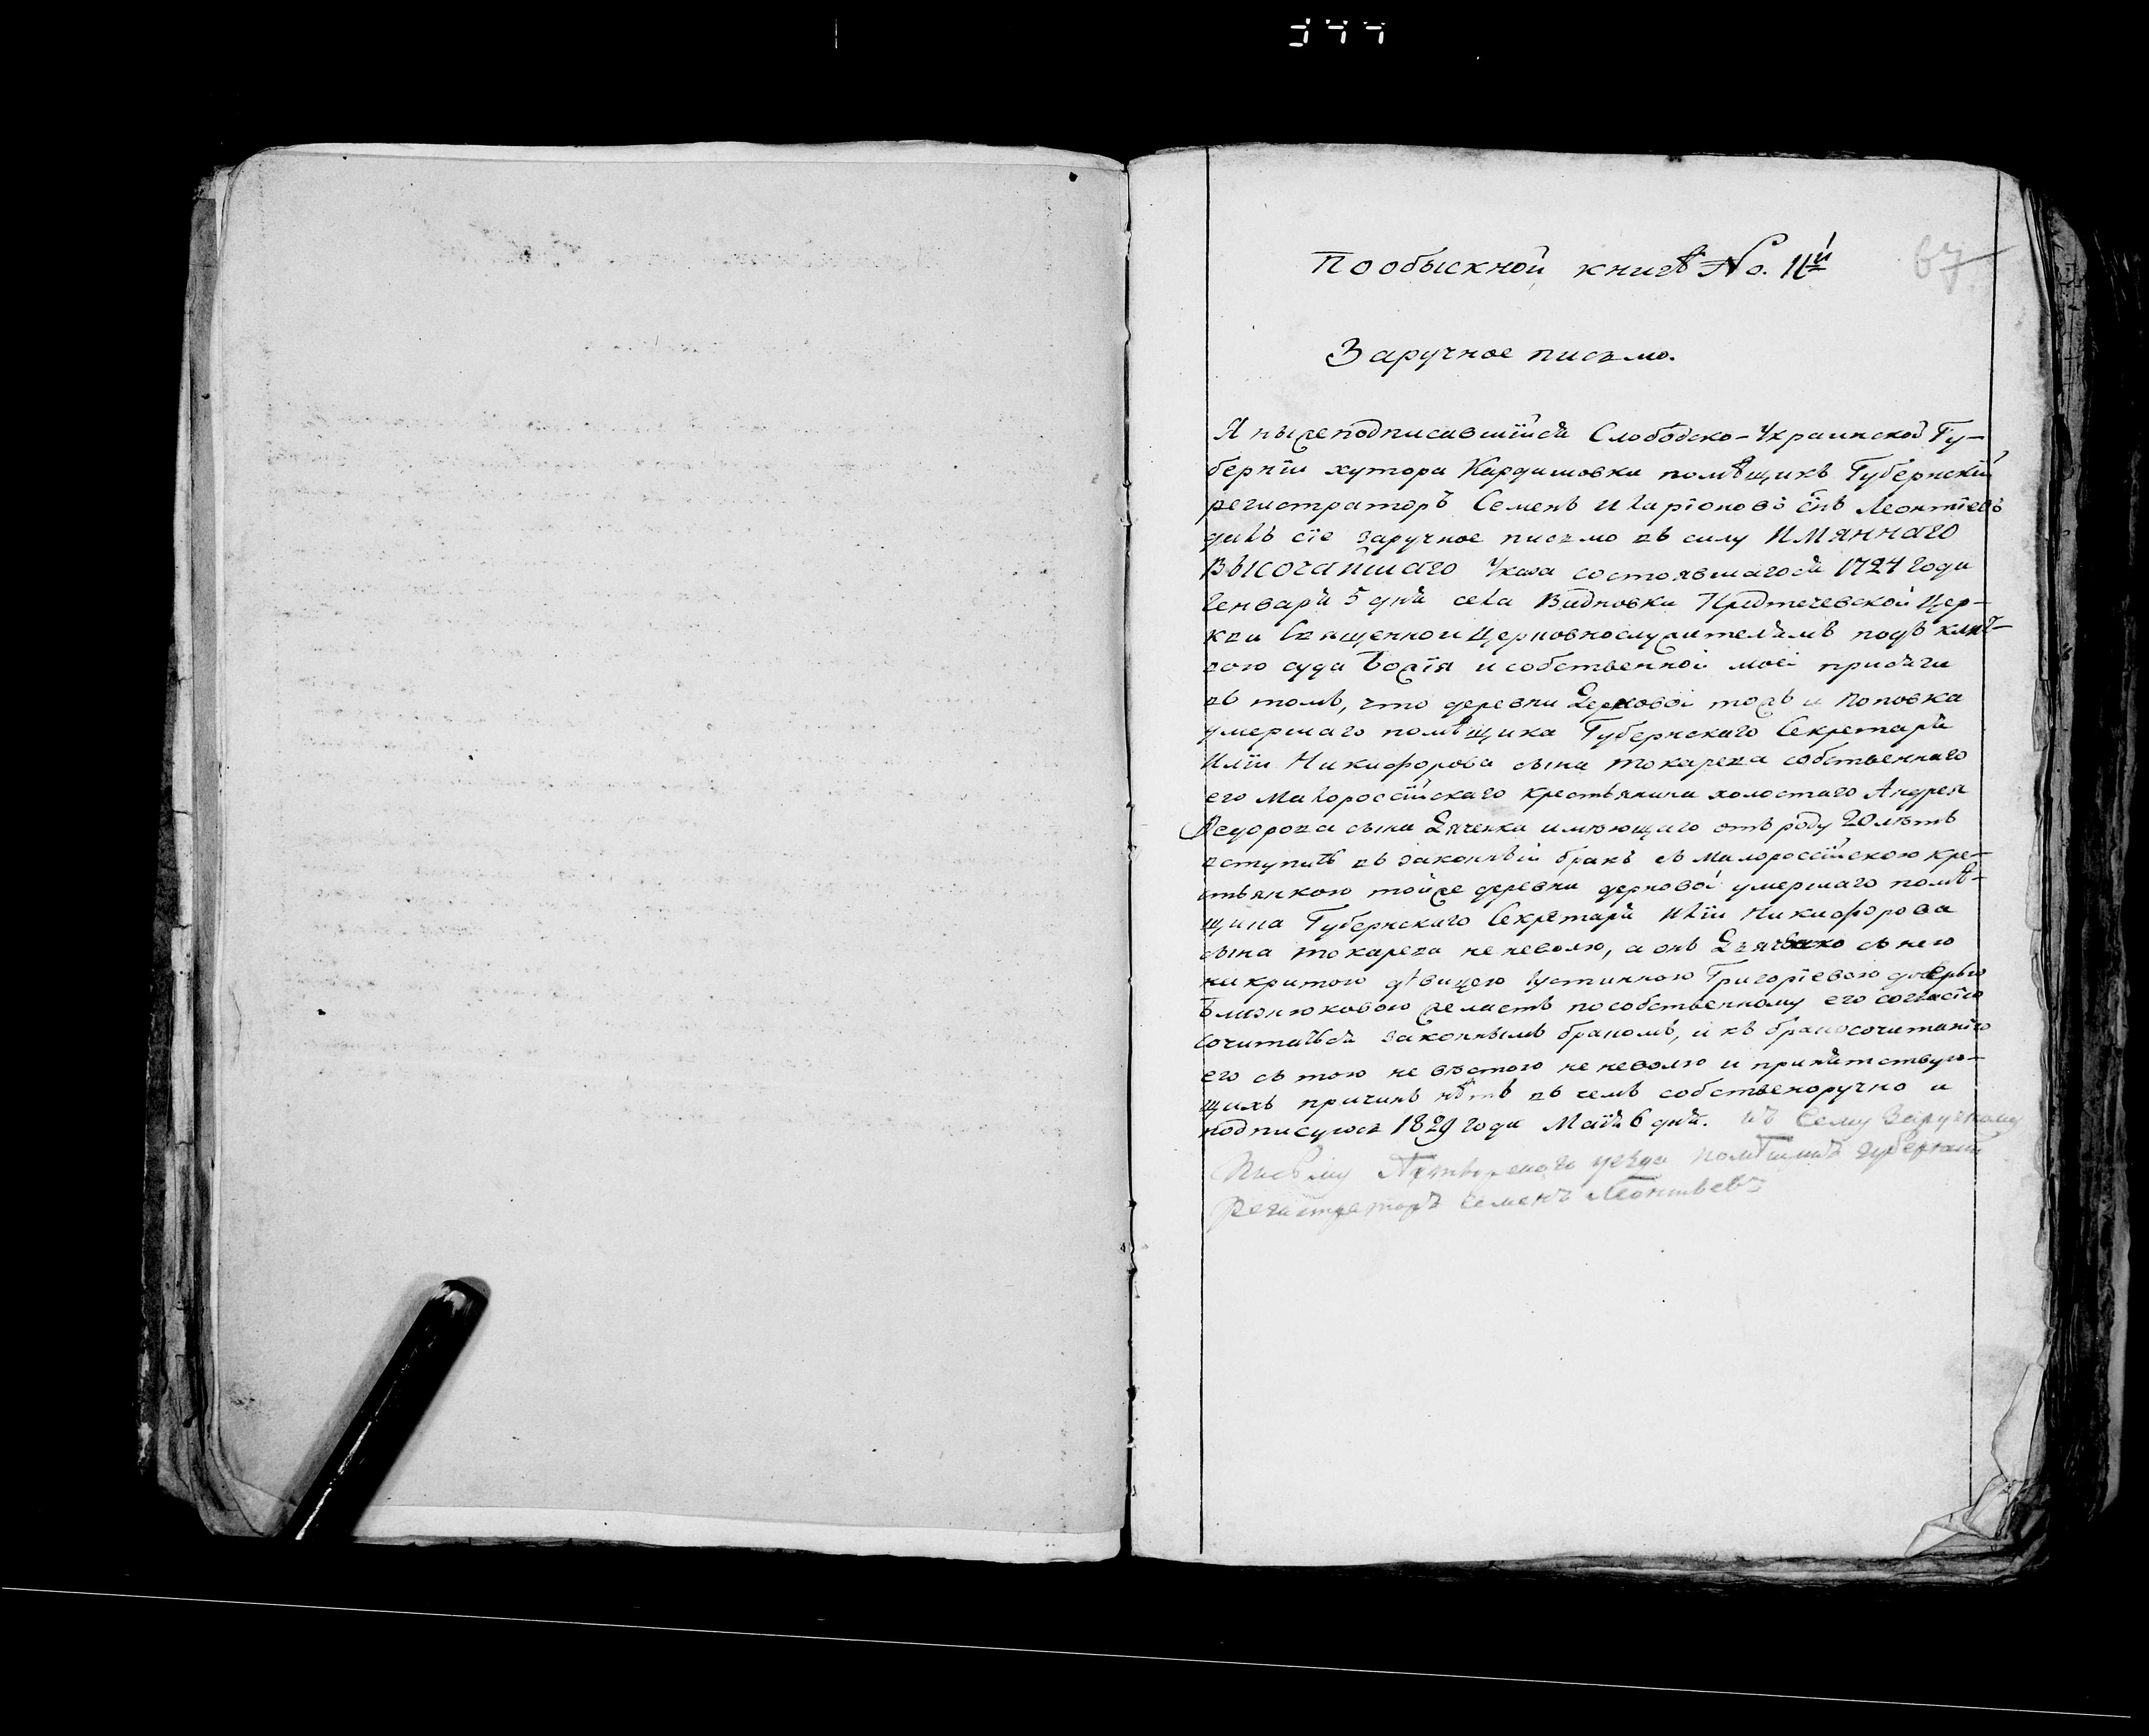 344
67
Пообыскной книгѣ No. 11й
Заручное писмо.
Я нижеподписавшійся Слободско-Украинской Гу-
берніи хутора Кардашовки помѣщикъ Губернскій
регистраторъ Семенъ Иларіоновъ снъ Леонтіевъ
далъ сіе заручное писмо въ силу ИМЯННАГО
ВЫСОЧАЙШАГО Указа состоявшагося 1724 года
Генваря 5 дня села Видновки Предтечевской Цер-
кви Священно и Церковнослужителямъ подъ клят-
вою суда Божія и собственной моей присяги
въ томъ, что деревни Дерновой тожъ и Поповка
умершаго помѣщика Губернскаго Секретаря
Иліи Никифорова сына Токарева собственнаго
его Малороссійскаго крестьянина холостаго Андрея
Ѳедорова сына Дяченка имѣющаго отъ роду 20 лѣтъ
вступить въ законный бракъ съ Малороссійскою кре-
стьянкою тойже деревни дерновой умершаго помѣ-
щика Губернскаго Секретаря Иліи Никифорова
сына Токарева не неволю, а онъ Дьяченко съ нею
никритою дѣвицею Іустинною Григоріевою дочерью
Близнюковою желаетъ по собственному его согласію
сочитаться законнымъ бракомъ, и къ бракосочитанію
его съ тою невѣстою не неволю и припятствую-
щихъ причинъ нѣтъ въ чемъ собственоручно и
подписуюсь 1829 года Маія 6 дня. къ Сему Заручному
Писму Ахтырскаго уезда помѣшикъ губернский
Регистраторъ Семенъ Леонтьевъ